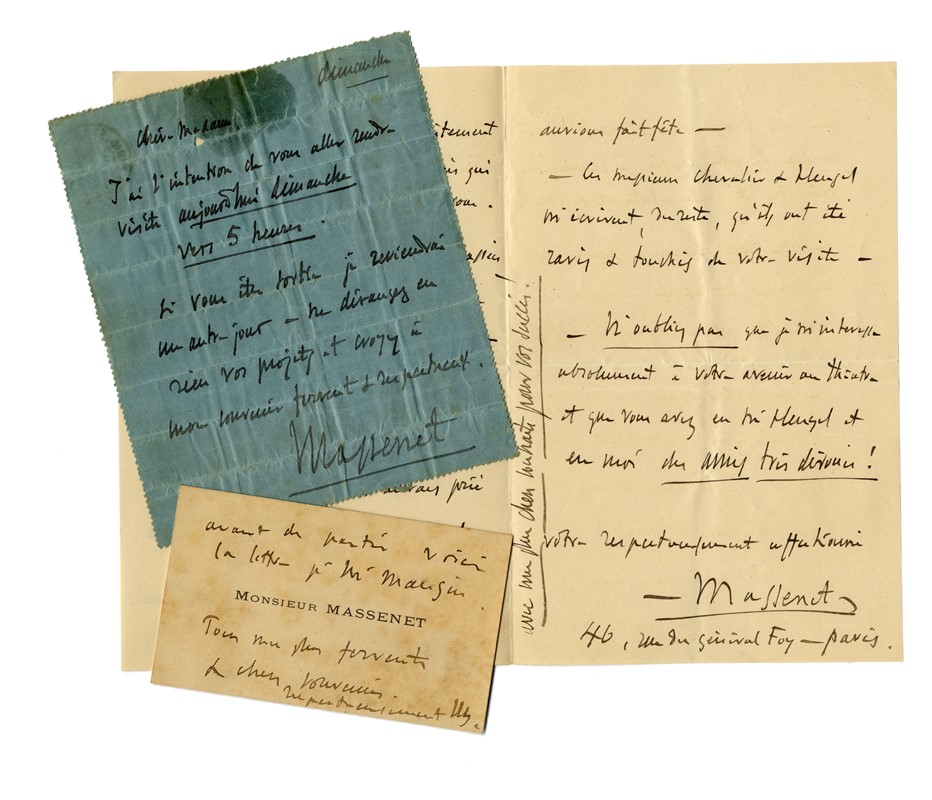 dimanche
Chère Madame,
J'ai l'intention de vous aller rendre
visite aujourd'hui dimanche
vers 5 heures.
Si vous êtes sortie je reviendrai
un autre jour — ne dérangez en
rien vos projets et croyez à
mon souvenir fervent & respectueux.
Massenet
avant de partir voici
la lettre p. Mr Mangin.
MONSIEUR MASSENET
Tous mes plus fervents
& chers souvenirs.
respectueusement M.
qui
prié
aurions fait fête —
— Ces messieurs Chevalier & Heugel
m'écrivent, du reste, qu'ils ont été
ravis & touchés de votre visite —
— N'oubliez pas que je m'intéresse
absolument à votre avenir au théâtre
et que vous avez en Mr Heugel et
en moi des amis très dévoués!
votre respectueusement affectionné
— Massenet
46, rue du général Foy — Paris.
avec mes plus chers souhaits pour vos succès!